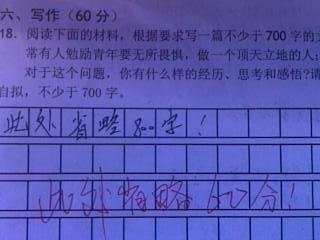 六、写作（60分）
18. 阅读下面的材料，根据要求写一篇不少于700字的文
常有人勉励青年要无所畏惧，做一个顶天立地的人；
对于这个问题，你有什么样的经历、思考和感悟?请
自拟，不少于700字。
此处省略800字！
此处省略60分！